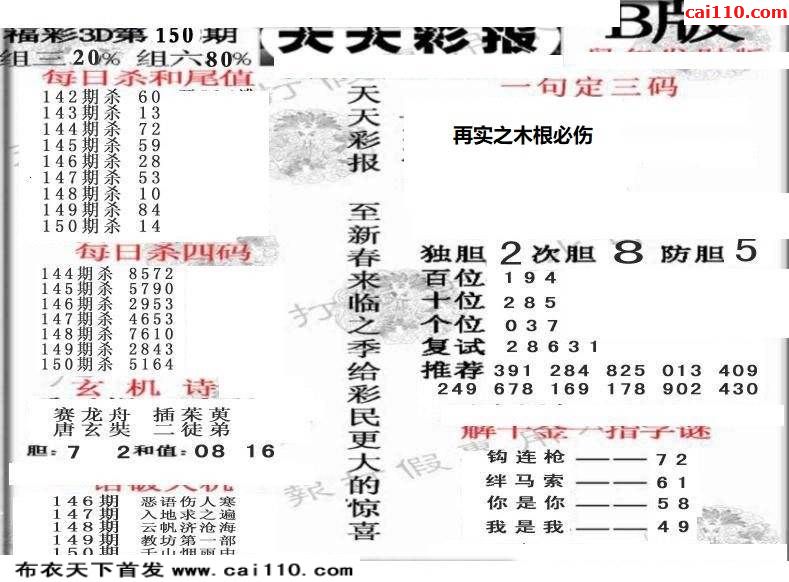 cai110.com
福彩3D第150期
组三20% 组六80%
【天天彩报】
B版
每日杀和尾值
142期杀 60
143期杀 13
144期杀 72
145期杀 59
146期杀 28
147期杀 53
148期杀 10
149期杀 84
150期杀 14
每日杀四码
144期杀 8572
145期杀 5790
146期杀 2953
147期杀 4653
148期杀 7610
149期杀 2843
150期杀 5164
玄机诗
赛龙舟 插茱萸
唐玄奘 二徒弟
胆:7 2和值:08 16
146期 恶语伤人寒
147期 入地求之遍
148期 云帆济沧海
149期 教坊第一部
150期 千山烟雨中
天天彩报 至新春来临之季给彩民更大的惊喜
一句定三码
再实之木根必伤
独胆2次胆8防胆5
百位 194
十位 285
个位 037
复试 28631
推荐 391 284 825 013 409
249 678 169 178 902 430
钩连枪————72
绊马索————61
你是你————58
我是我————49
布衣天下首发 www.cai110.com